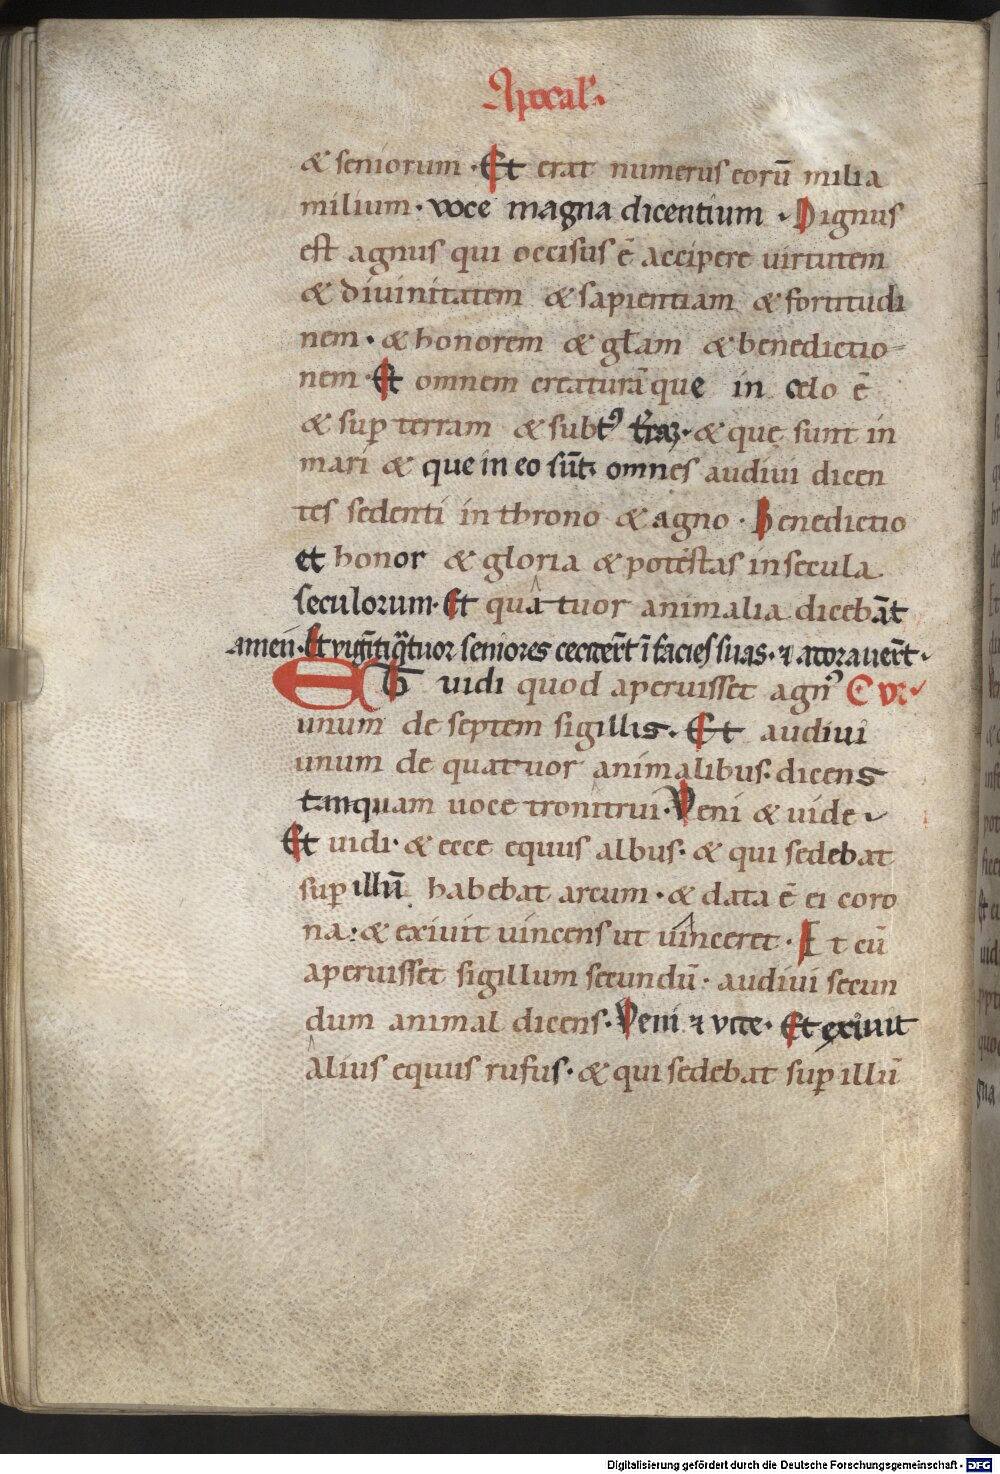 Apocal'.
& seniorum · Et erat numerus eorū milia
milium · voce magna dicentium · Dignus
est agnus qui occisus ē accipere virtutem
& divinitatem & sapientiam & fortitudi
nem · & honorem & gl̄am & benedictio-
nem · Et omnem creaturā que in celo ē
& sup terram & subtꝰ t̄raꝫ · & quę sunt in
mari & que in eo sūt · omnes audivi dicen
tes sedenti in throno & agno · Benedictio
et honor & gloria & potestas in secula
seculorum · Et quatuor animalia dicebāt
amen · Et vigīti qͣtuor seniores cecider̄t ī facies suas · ⁊ adoraver̄t ·
ET vidi quod aperuisset agnꝰ C VI
unum de septem sigillis · Et audivi
unum de quatuor animalibus · dicens
tanquam voce tronitrui · Veni & vide
Et vidi · & ecce equus albus · & qui sedebat
sup illū habebat arcum · & data ē ei coro
na : & exivit vincens ut vinceret · Et cū
aperuisset sigillum secundū · audivi secun
dum animal dicens · Veni ⁊ vide · Et exivit
alius equus rufus · & qui sedebat sup illū
Digitalisierung gefördert durch die Deutsche Forschungsgemeinschaft - DFG